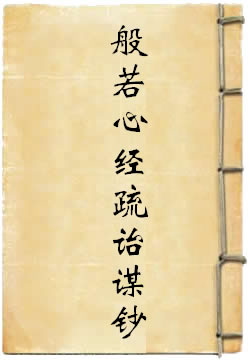 般若心经疏诒谋钞